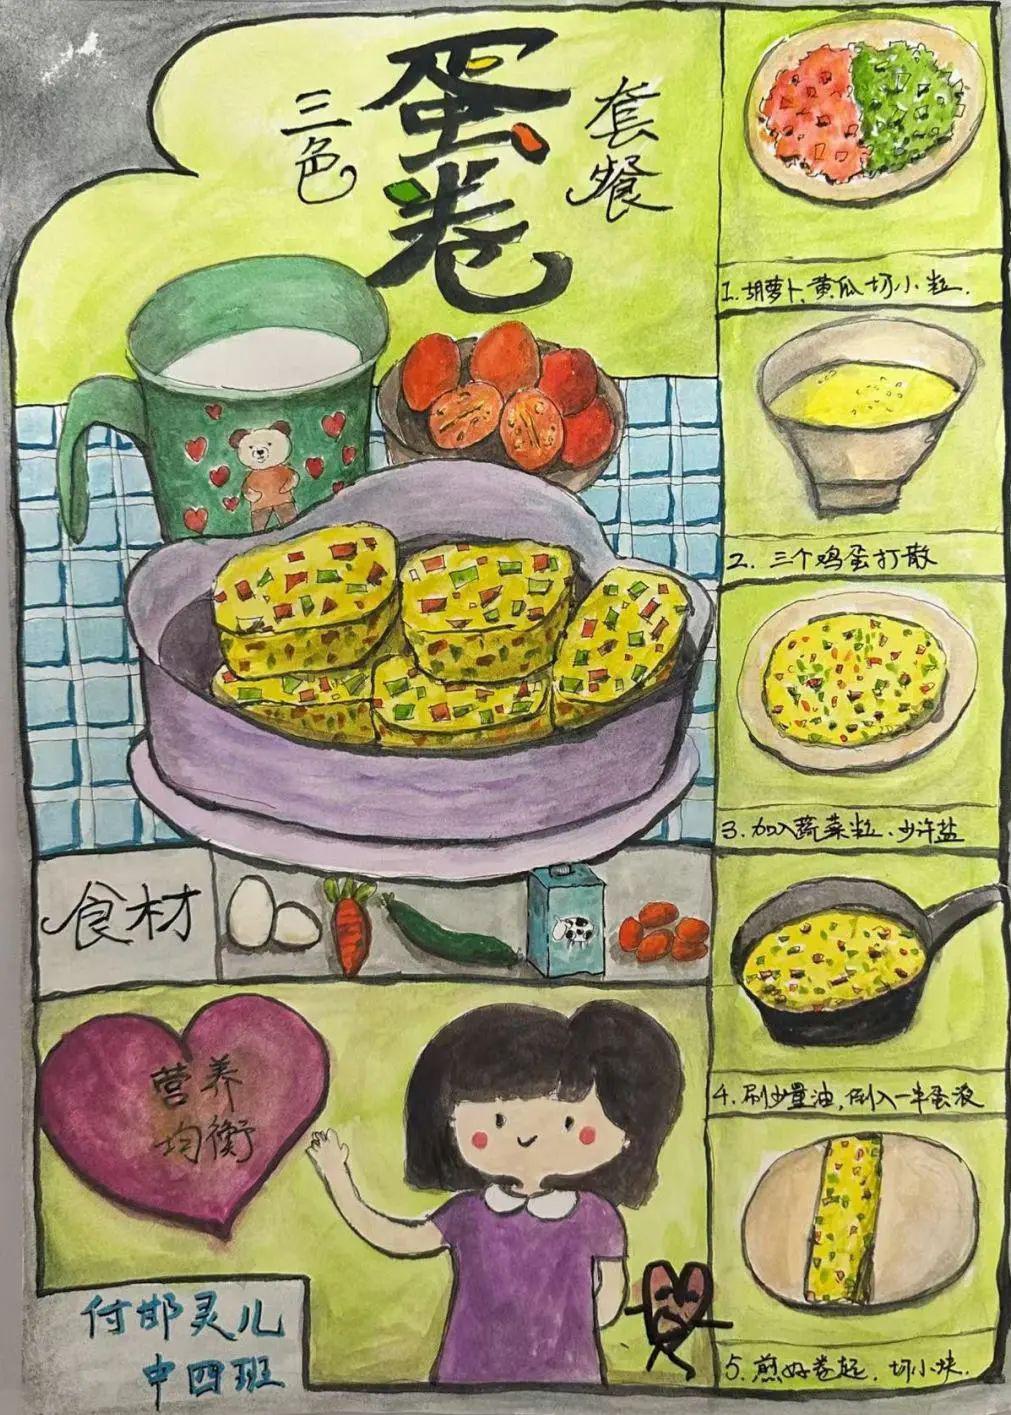 三色
蛋卷
套餐
1.胡萝卜、黄瓜切小粒.
2.三个鸡蛋打散
3.加入蔬菜粒、少许盐
4.刷少量油,倒入一半蛋液
5.煎好卷起.切小块.
食材
营养
均衡
付邯灵儿
中四班